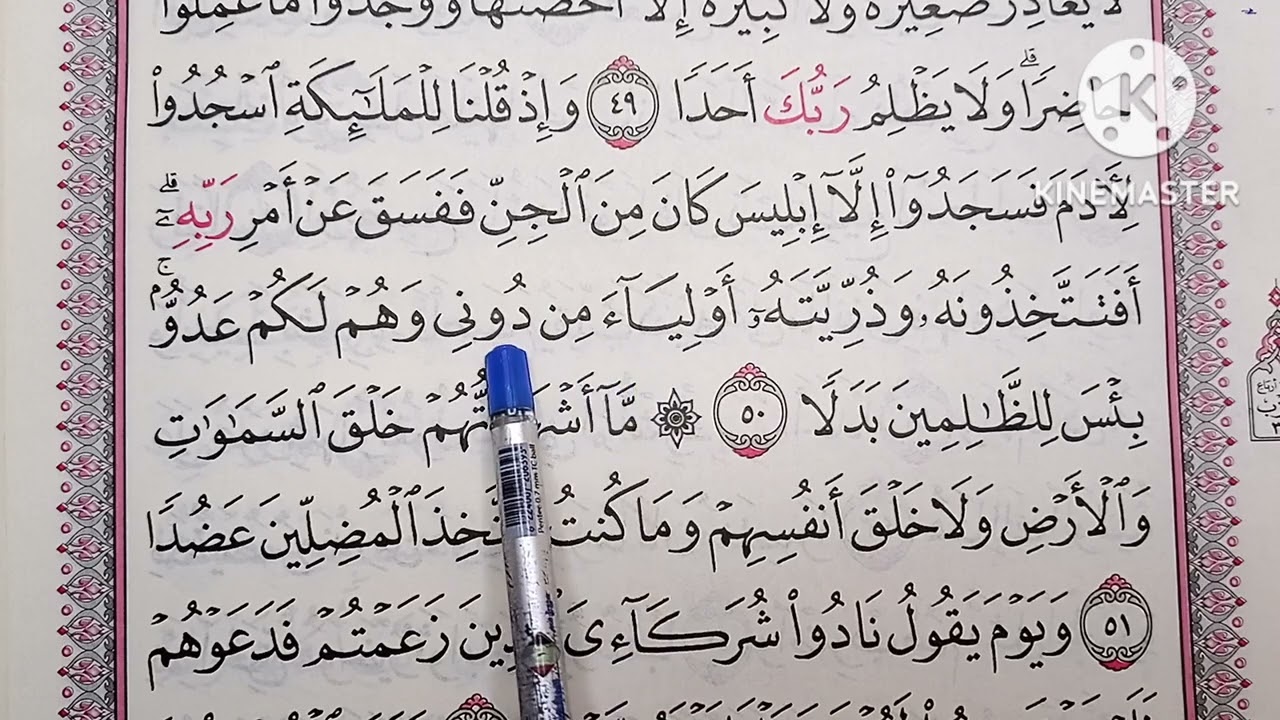 لَا يُغَادِرُ صَغِيرَةً وَلَا كَبِيرَةً إِلَّآ أَحْصَىٰهَا وَوَجَدُوا۟ مَا عَمِلُوا۟
حَاضِرًا ۗ وَلَا يَظْلِمُ رَبُّكَ أَحَدًا ٤٩ وَإِذْ قُلْنَا لِلْمَلَـٰٓئِكَةِ ٱسْجُدُوا۟
لِـَٔادَمَ فَسَجَدُوٓا۟ إِلَّآ إِبْلِيسَ كَانَ مِنَ ٱلْجِنِّ فَفَسَقَ عَنْ أَمْرِ رَبِّهِۦٓ ۗ
أَفَتَتَّخِذُونَهُۥ وَذُرِّيَّتَهُۥٓ أَوْلِيَآءَ مِن دُونِى وَهُمْ لَكُمْ عَدُوٌّۢ ۚ
بِئْسَ لِلظَّـٰلِمِينَ بَدَلًا ٥٠ ۞ مَّآ أَشْهَدتُّهُمْ خَلْقَ ٱلسَّمَـٰوَٰتِ
وَٱلْأَرْضِ وَلَا خَلْقَ أَنفُسِهِمْ وَمَا كُنتُ مُتَّخِذَ ٱلْمُضِلِّينَ عَضُدًا
٥١ وَيَوْمَ يَقُولُ نَادُوا۟ شُرَكَآءِىَ ٱلَّذِينَ زَعَمْتُمْ فَدَعَوْهُمْ
KINEMASTER